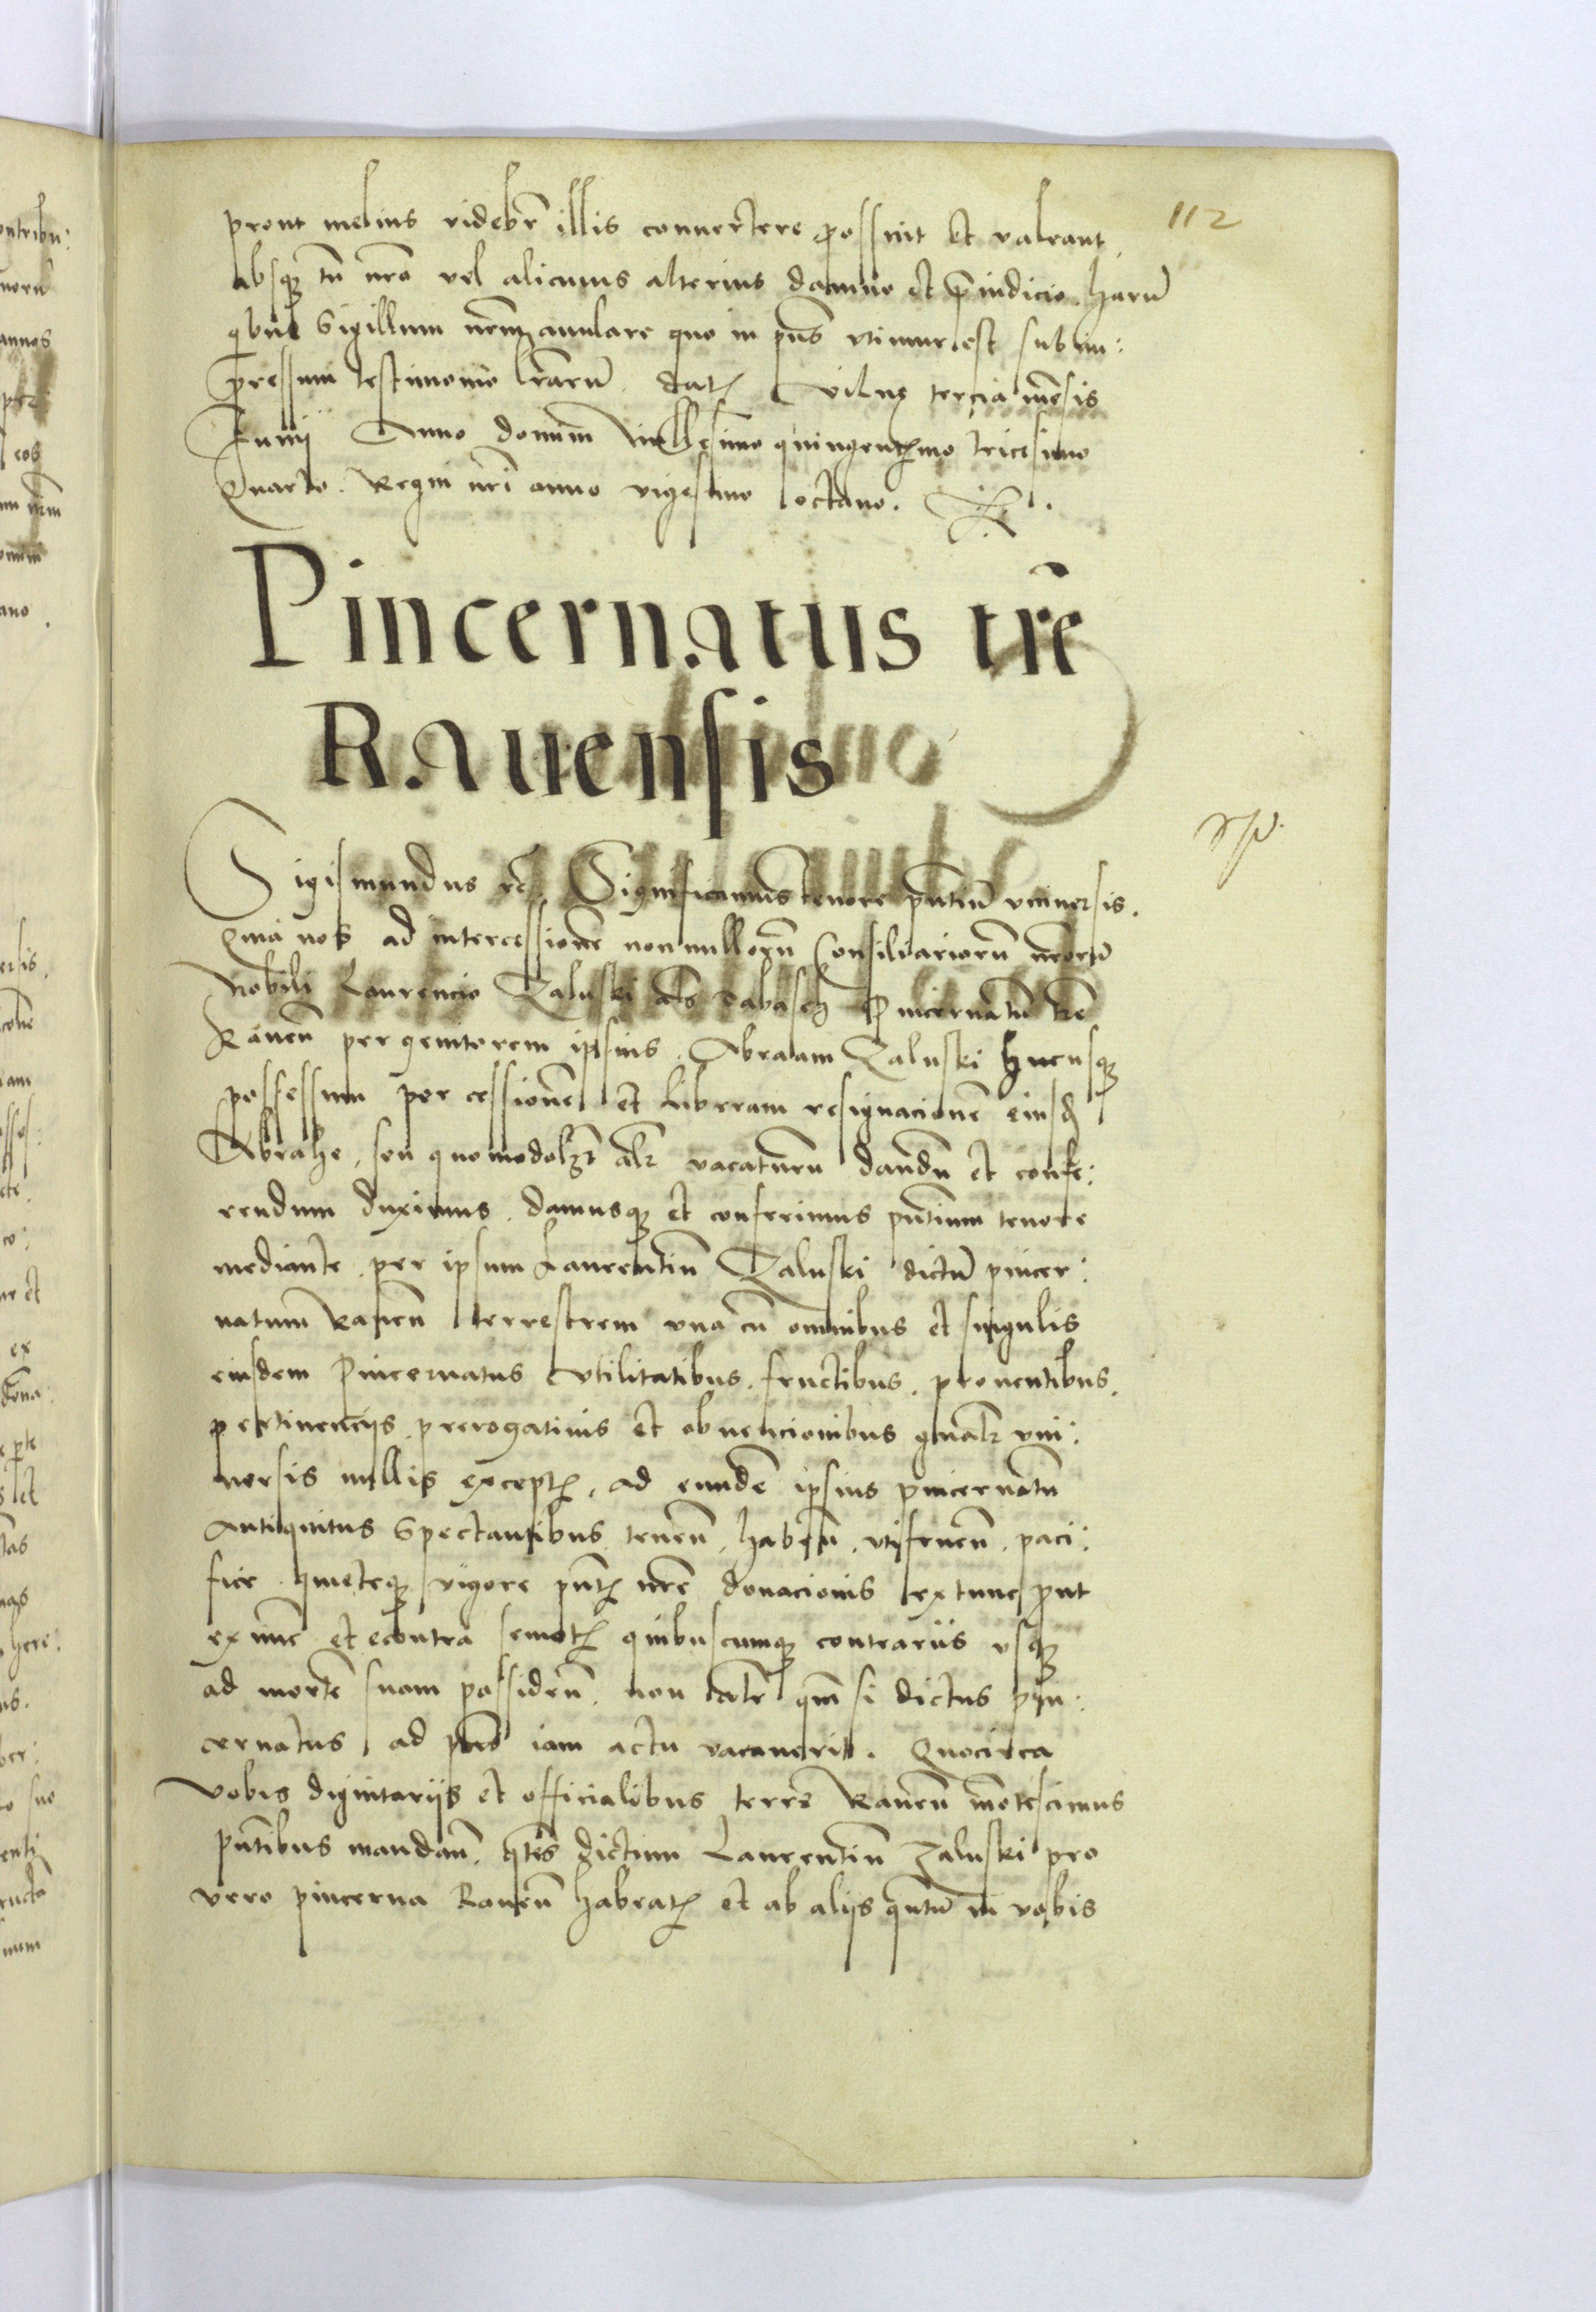 112
prout melius videbr̄ illis conuertere possint et valeant
absqꝫ tn̄ nr̄o vel alicuius alterius damno et p̄iudicio. harū
qbus Sigillum nr̄m annulare quo in pn̄s vtimur est subim:
pressum testimonio lr̄arū. datꝭ Vilnę tercia mēsis
Junij Anno domini Millesimo quingentꝭmo tricesimo
Quarto. Regni nr̄i anno vigesimo octauo.
Pincernatus tr̄e
Rauensis
Sigismundus rc̄. Significamus tenore pn̄tiū vniuersis.
Quia nos ad intercessionē nonnullorū Consiliariorū nr̄orū
Nobili Laurencio Zaluski als̄ Tabasch Pincernatū tr̄e
Rauen̄ per genitorem ipsius. Abraam Zaluski hucusqꝫ
possessum per cessionē et liberam resignacionē eiusd̄
Abrahe, seu quomodolꝫt alr̄ vacaturū dandū et confe:
rendum duximus. damusqꝫ et conferimus pn̄tium tenore
mediante. per ipsum Laurentiū Zaluski dictū pincer:
natum Rauen̄ terrestrem vna cū omnibus et singulis
eiusdem Pincernatus vtilitatibus. fructibus. prouentibus.
pertinencijs. prerogatiuis et obuencionibus gn̄alr̄ vni:
uersis nullis exceptꝭ, ad eundē ipsius pincernatū
antiquitus Spectantibus tenen̄. haben̄. vtifruen̄. paci:
fice quieteqꝫ vigore pn̄tꝭ nr̄e donacionis ex tunc prout
ex nunc et econtra semotꝭ quibuscumqꝫ contrariis vsqꝫ
ad mortē suam possiden̄. non alr̄ qm̄ si dictus pin:
cernatus ad pn̄s iam actu vacauerit. Quocirca
vobis dignitarijs et officialibus terre Rauen̄
pn̄tibus mandam̄. qten̄s dictum Laurentiū Zaluski pro
vero pincerna Rauen̄ habeatꝭ et ab alijs qn̄tū in vobis